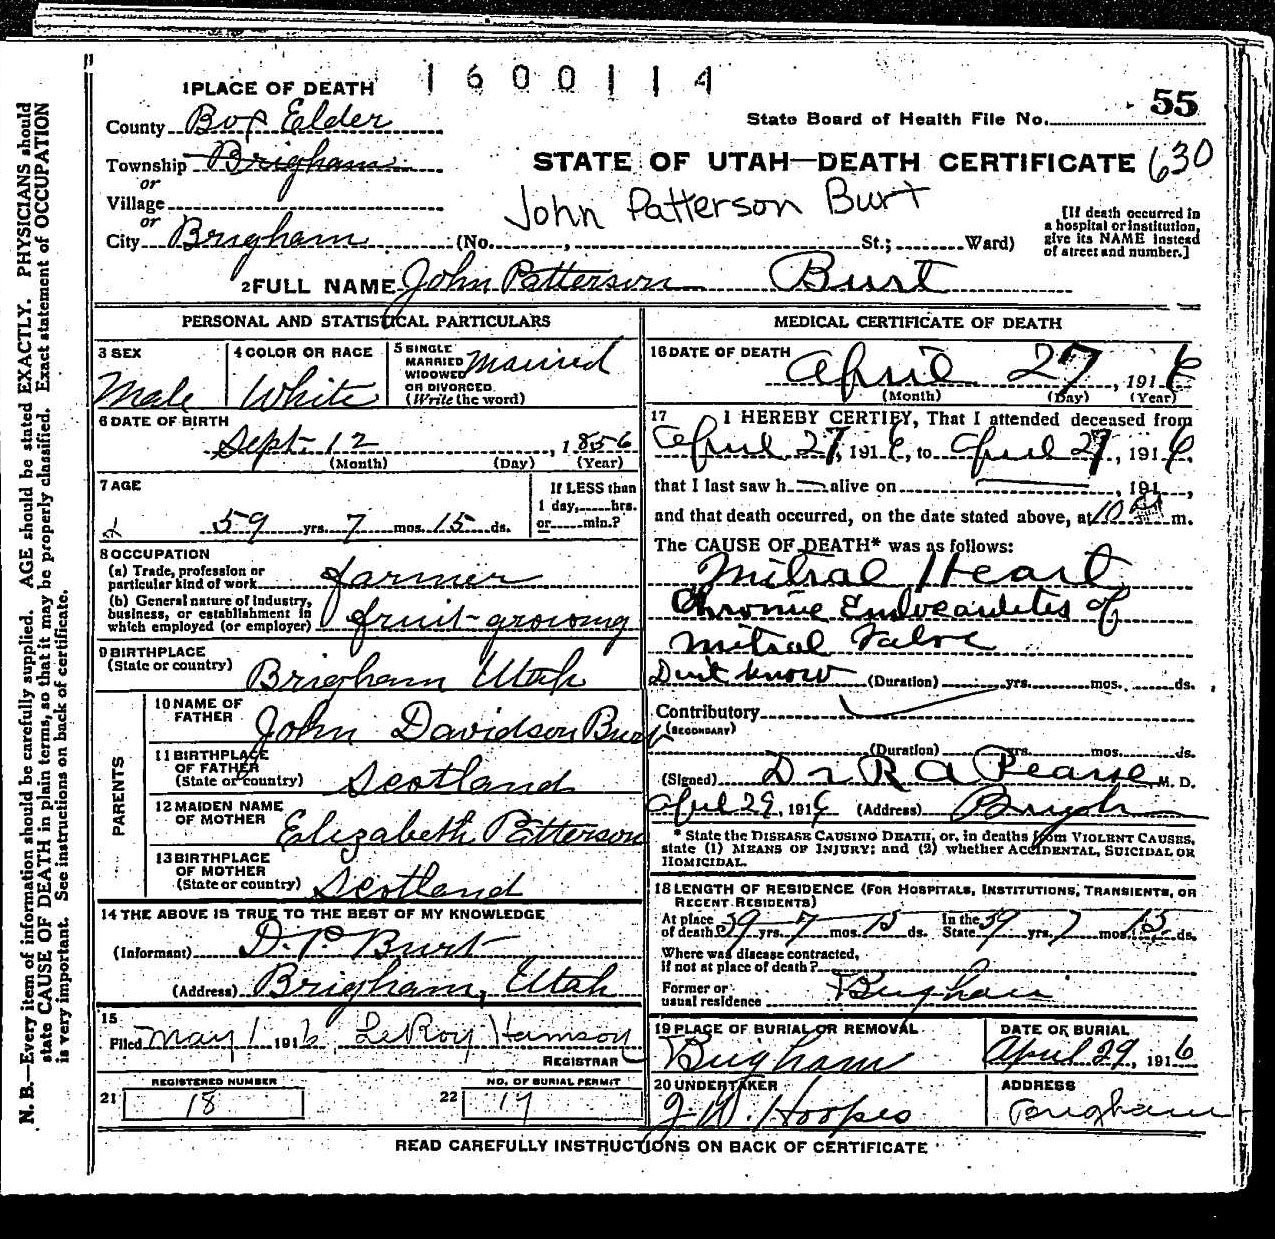 1600114
1 PLACE OF DEATH
County Box Elder
State Board of Health File No. 55
Township Brigham
STATE OF UTAH—DEATH CERTIFICATE 630
or
Village
John Patterson Burt
or
City Brigham (No. , St.; Ward)
[If death occurred in
a hospital or institution,
give its NAME instead
of street and number.]
2 FULL NAME John Patterson Burt
PERSONAL AND STATISTICAL PARTICULARS
3 SEX
Male
4 COLOR OR RACE
White
5 SINGLE
MARRIED
WIDOWED
OR DIVORCED
(Write the word)
Married
6 DATE OF BIRTH
Sept. 12, 1856
(Month) (Day) (Year)
7 AGE
59 yrs. 7 mos. 15 ds.
If LESS than
1 day, hrs.
or min.?
8 OCCUPATION
(a) Trade, profession or
particular kind of work farmer
(b) General nature of industry,
business, or establishment in
which employed (or employer) fruit-growing
9 BIRTHPLACE
(State or country) Brigham Utah
PARENTS
10 NAME OF
FATHER John Davidson Burt
11 BIRTHPLACE
OF FATHER
(State or country) Scotland
12 MAIDEN NAME
OF MOTHER Elizabeth Patterson
13 BIRTHPLACE
OF MOTHER
(State or country) Scotland
14 THE ABOVE IS TRUE TO THE BEST OF MY KNOWLEDGE
(Informant) D. P. Burt
(Address) Brigham, Utah
15
Filed May 1 1916, LeRoy
REGISTRAR
REGISTERED NUMBER
21 18
NO. OF BURIAL PERMIT
22 17
MEDICAL CERTIFICATE OF DEATH
16 DATE OF DEATH
April 27, 1916
(Month) (Day) (Year)
17 I HEREBY CERTIFY, That I attended deceased from
April 27, 1916, to April 27, 1916,
that I last saw h alive on , 191 ,
and that death occurred, on the date stated above, at 10 m.
The CAUSE OF DEATH* was as follows:
Mitral Heart
Chronic Endocarditis of
Mitral Valve
Don't know (Duration) yrs. mos. ds.
Contributory
(SECONDARY)
(Duration) yrs. mos. ds.
(Signed) Dr R A Pearse M. D.
April 29, 1916 (Address) Brigham
* State the DISEASE CAUSING DEATH, or, in deaths from VIOLENT CAUSES,
state (1) MEANS OF INJURY; and (2) whether ACCIDENTAL, SUICIDAL OR
HOMICIDAL.
18 LENGTH OF RESIDENCE (FOR HOSPITALS, INSTITUTIONS, TRANSIENTS, OR
RECENT RESIDENTS)
At place
of death 59 yrs. 7 mos. 15 ds. In the
State 59 yrs. 7 mos. 15 ds.
Where was disease contracted,
if not at place of death?
Former or
usual residence Brigham
19 PLACE OF BURIAL OR REMOVAL
Brigham
DATE OF BURIAL
April 29, 1916
20 UNDERTAKER
J W. Hoopes
ADDRESS
Brigham
READ CAREFULLY INSTRUCTIONS ON BACK OF CERTIFICATE
N. B.—Every item of information should be carefully supplied. AGE should be stated EXACTLY. PHYSICIANS should
state CAUSE OF DEATH in plain terms, so that it may be properly classified. Exact statement of OCCUPATION
is very important. See instructions on back of certificate.